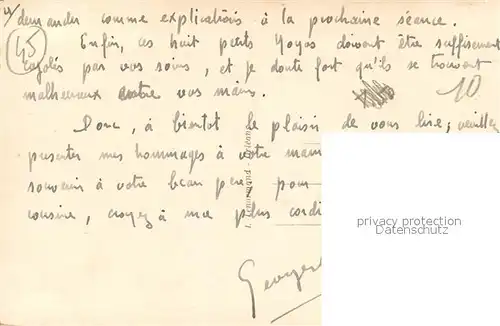 demander comme explications à la prochaine séance.
45
Enfin, ces huit petits Yoyos doivent être suffisement
cajolés par vos soins, et je doute fort qu'ils se trouvent
malheureux entre vos mains.
10
Donc, à bientot le plaisir de vous lire; veuillez
presenter mes hommages à votre mam
souvenir à votre beau pere pour
cousine, croyez à ma plus cordi
privacy protection
Datenschutz
Georges